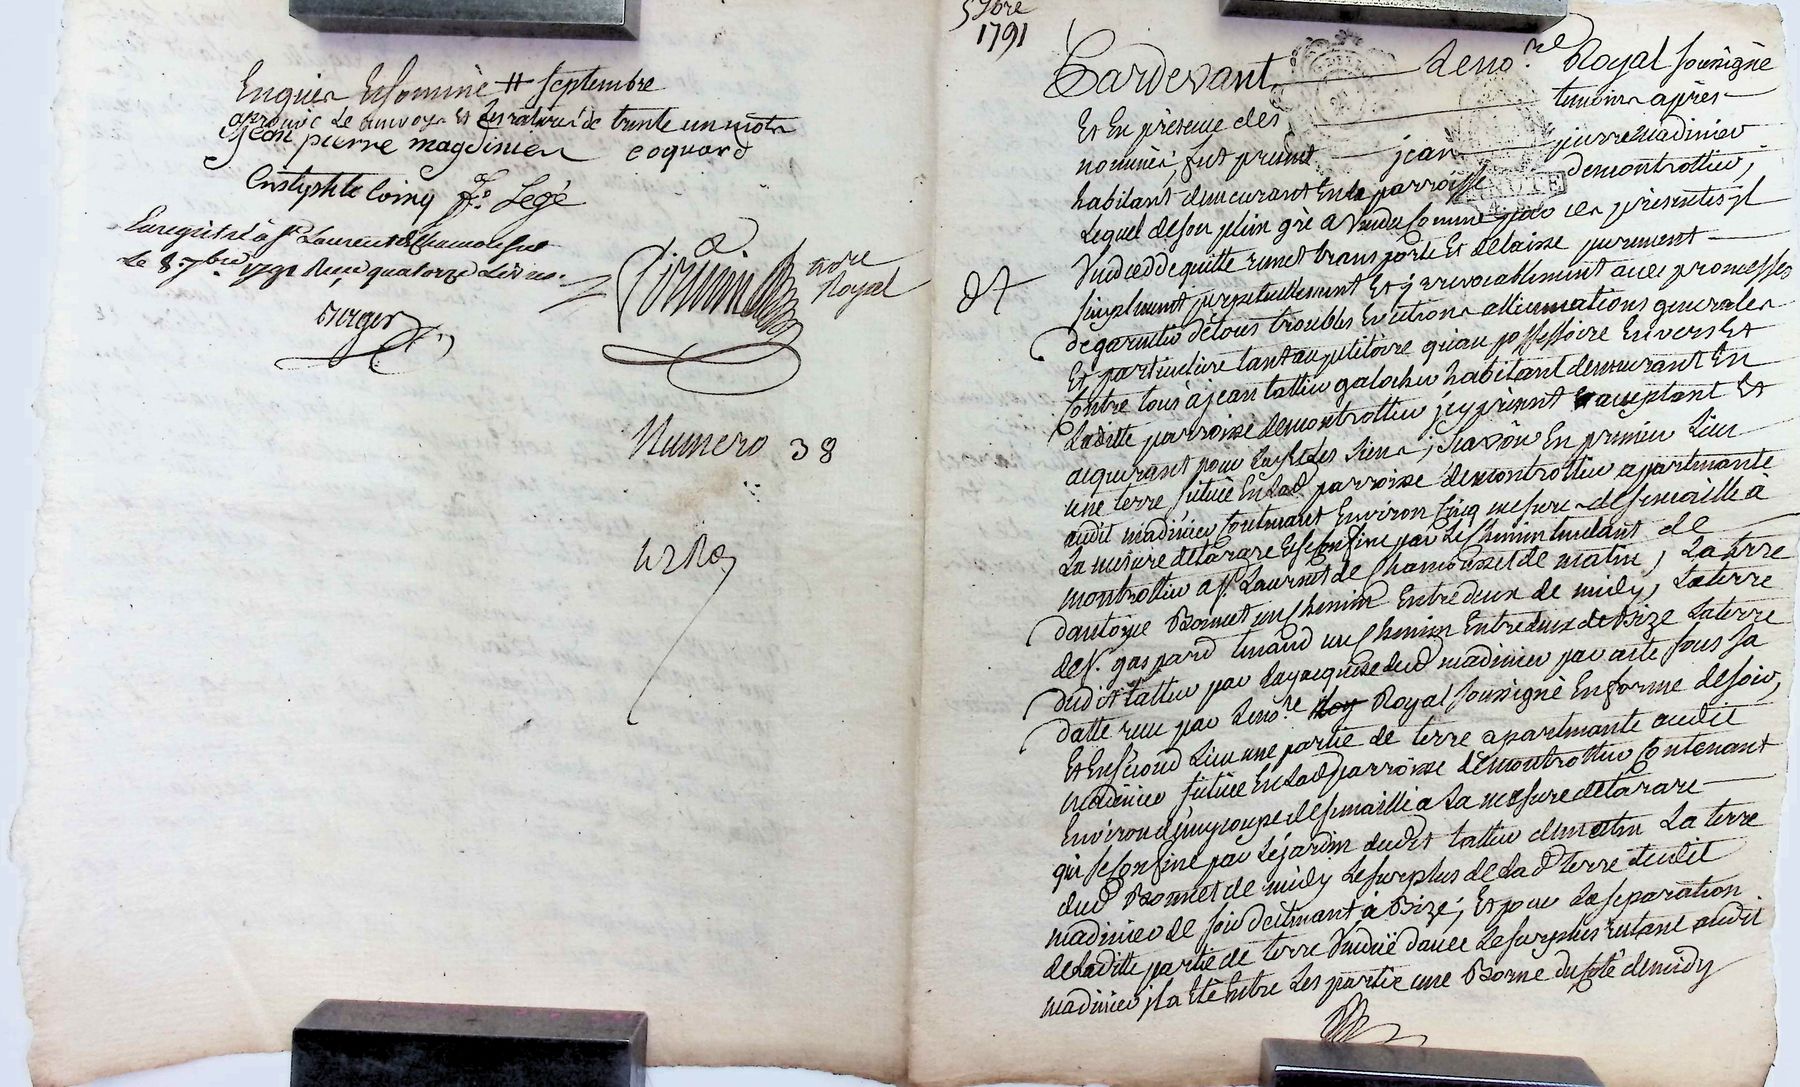 Enquier Essommé # septembre
aprouvé Le renvoye Et Les ratures de trente un mots
jean pierre magdinier coquard
Cristophle Coing Legé
Enregistré à st Laurent de Chamousset
Le 8 7bre 1791 Reçu quatorze Livres
notre Royal
Berger
Numero 38
5 7bre
1791
Pardevant Le no.re Royal soussigné
Et En presence des temoins après
nommés; fut present jean pierre madinier
habitant demeurant En la parroisse demontrottier,
Lequel de son plein gré a vendu comme par ces presentes il
vend cedde quitte remet transporte Et delaisse purement
simplement perpetuellement Et irrevocablement avec promesses
de garantie de tous troubles Evictions allienations generales
Et particuliere tant au petitoire qu'au possessoire Envers Et
Contre tous à jean tattier galocher habitant demeurant En
Laditte parroisse demontrottier icy present acceptant Et
acquerant pour Luy Et les siens; sçavoir En premier Lieu
une terre, situëe En Lad parroisse demontrottier apartenante
audit madinier contenant Environ Cinq mesures de semaille à
La mesure de tarare Et se confine par Le Chemin tendant de
montrottier a st. Laurent de Chamousset de matin, La terre
d'antoine Bonnet un Chemin Entre deux de midy, La terre
de sr. gaspard un Chemin Entre deux de Bize La terre
dudit tattier par Luy acquise dud madinier par acte sous sa
datte reçu par Le no.re Royal soussigné En forme de soir,
Et En second Lieu une partie de terre apartenante audit
madinier située En Lad parroisse demontrottier Contenant
Environ une coupe de semaille a La mesure de tarare
qui se confine par Le jardin dudit tattier de matin La terre
dud Bonnet de midy Le surplus de La d terre dudit
madinier de soir declinant à Bize; Et pour La separation
de Laditte partie de terre venduë d'avec Le surplus restant audit
madinier il a Eté Entre Les parties une Borne du coté de midy